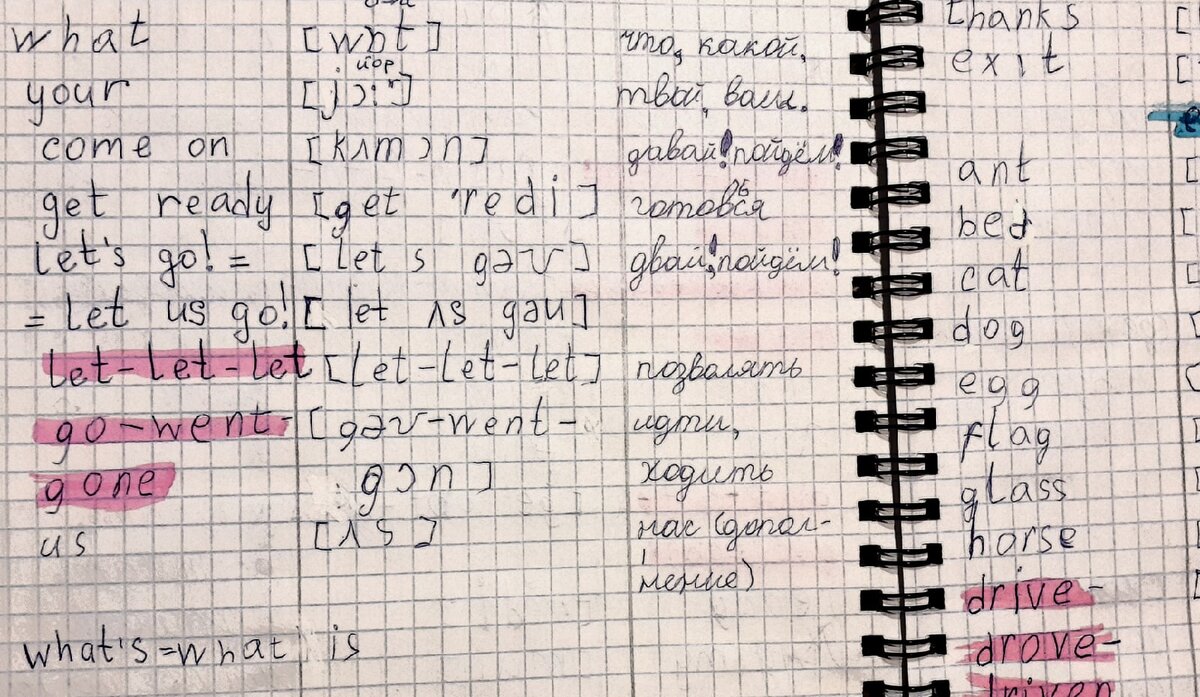 what [wɒt] что, какой,
йор
your [jɔ:ʳ] твой, ваш.
come on [kʌmɔn] давай! пойдём!
get ready [get 'redi] готовься
let's go! = [let s gəʊ] двай! пойдём!
= let us go! [let ʌs gəu]
let-let-let [let-let-let] позволять
go-went- [gəʊ-went- идти,
gone gɔn] ходить
us [ʌs] нас (допол-
нение)
what's=what is
thanks
exit
ant
bed
cat
dog
egg
flag
glass
horse
drive-
drove-
driven